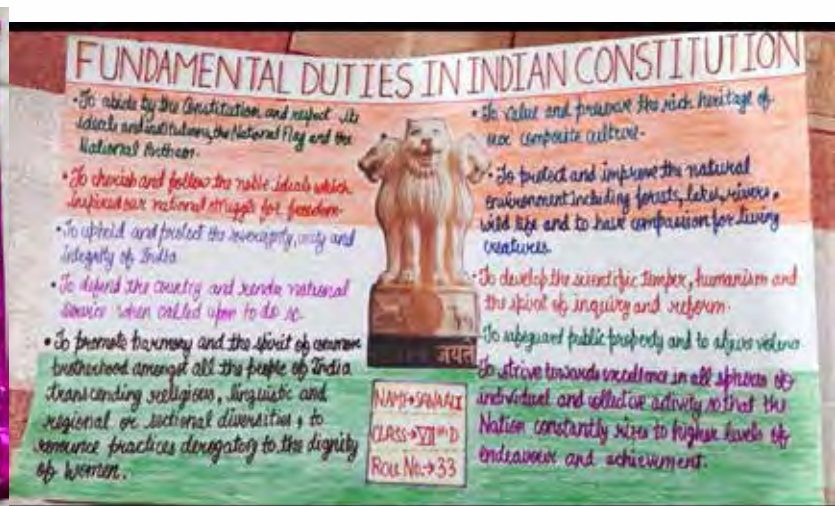 FUNDAMENTAL DUTIES IN INDIAN CONSTITUTION
• To abide by the Constitution and respect its
ideals and institutions, the National Flag and the
National Anthem.
• To cherish and follow the noble ideals which
inspired our national struggle for freedom.
• To uphold and protect the sovereignty, unity and
integrity of India
• To defend the country and render national
service when called upon to do so.
• To promote harmony and the spirit of common
brotherhood amongst all the people of India
transcending religious, linguistic and
regional or sectional diversities, to
renounce practices derogatory to the dignity
of women.
• To value and preserve the rich heritage of
our composite culture.
• To protect and improve the natural
environment including forests, lakes, rivers,
wild life and to have compassion for living
creatures.
• To develop the scientific temper, humanism and
the spirit of inquiry and reform.
• To safeguard public property and to abjure violence
To strive towards excellence in all spheres of
individual and collective activity so that the
Nation constantly rises to higher levels of
endeavour and achievement.
जयते
NAME→SANA ALI
CLASS→VIIth D
ROLL No.→33